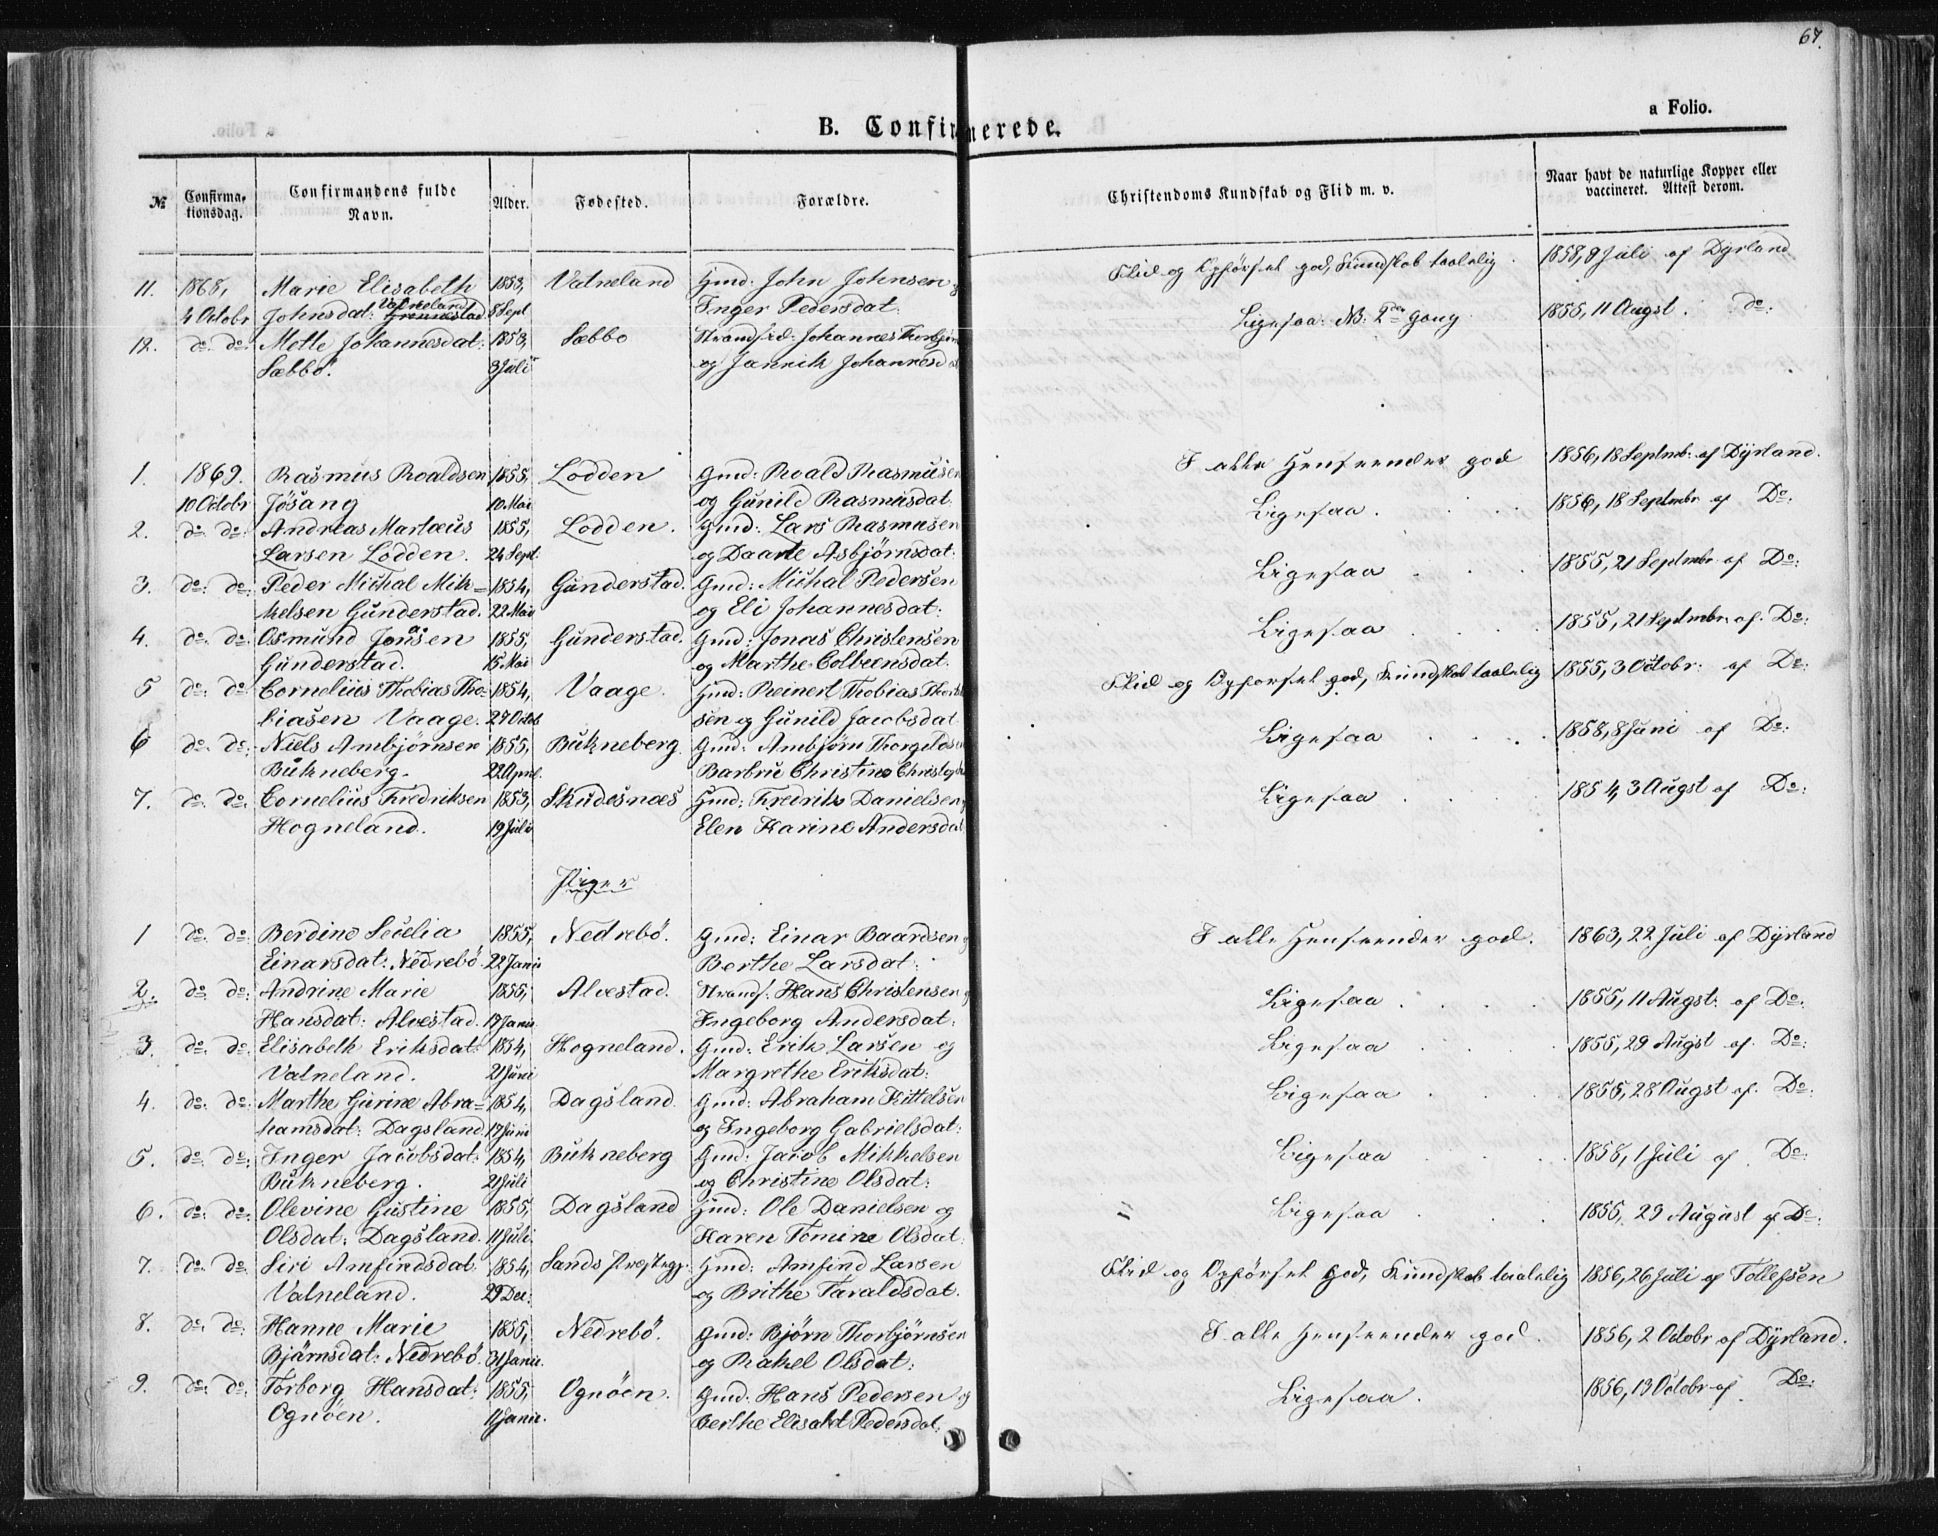 67.
a Folio.
B. Confirmerede.
№ Confirma-tionsdag. Confirmandens fulde Navn. Alder. Fødested. Forældre. Christendoms Kundskab og Flid m. v. Naar havt de naturlige Kopper eller vaccineret. Attest derom.
11. 1868, Marie Elisabeth 1853, Valneland Gmd: John Johnsen og Flid og Opførsel god, Kundskab taalelig. 1858, 9 Juli af Dyrland
4 Octobr Johnsdat: Valneland 8 Sept Inger Pedersdat:
12. do: do: Mette Johannesdat: 1853, Sæbbø Strandsid: Johannes Thorbjörn Ligesaa: NB: 2den Gang. 1855, 11 Augst. do:
Sæbbø. 3 Juli og Jannik Johannesdat
1. 1869. Rasmus Roaldsen 1855, Lodden Gmd: Roald Rasmusen I alle Henseender god 1856, 18 Septmbr: af Dyrland.
10 Octobr Jösang 10 Mai og Gunild Rasmusdat:
2. do: do: Andreas Martæus 1855, Lodden. Gmd: Lars Rasmusen Ligesaa. 1856, 18 Septmbr af Do:
Larsen Lodden. 24 Sept og Daarte Asbjørnsdat:
3. do: do: Peder Michal Mik- 1854, Gunderstad. Gmd: Michal Pedersen Ligesaa 1855, 21 Septmbr af Do:
kelsen Gunderstad. 22 Mai og Eli Johannesdat:
4. do: do: Osmund Jonasen 1855, Gunderstad. Gmd: Jonas Christensen Ligesaa 1855, 21 Septmbr: af Do:
Gunderstad. 15 Mai og Marthe Colbeensdat:
5 do: do: Cornelius Thobias Tho- 1854, Vaage. Hmd: Reinert Thobias Flid og Opførsel god, Kundskab taalelig 1855, 3 Octobr: af Do:
biasen Vaage. 27 Octob sen og Gunild Jacobsdat
6 do: do: Niels Ambjörnsen 1855, Bukneberg. Gmd: Ambjörn Thorgilsen Ligesaa 1858, 8 Juni af Do:
Bukneberg. 22 April. Barbru Christine
7. do: do: Cornelius Fredriksen 1853, Skudesnæs Hmd: Fredrik Danielsen Ligesaa 1854, 3 Augst af Do:
Hogneland. 19 Juli Elen Karine Andersdat
Piger
1 do: do: Berdine Seselia 1855, Nedrebö. Gmd: Einar Baardsen I alle Henseender god. 1863, 22 Juli af Dyrland
Einarsdat: Nedrebö 22 Janu Berthe Larsdat:
2. do: do: Andrine Marie 1855, Alvestad. Strands: Hans Christensen Ligesaa 1855, 11 Augst: af Do:
Hansdat: Alvestad. 17 Janu Ingeborg Andersdat:
3. do: do: Elisabeth Eriksdat: 1854, Hogneland. Gmd: Erik Larsen og Ligesaa 1855, 29 Augst af Do:
Valneland. 21 Juni Margrethe Eriksdat:
4. do: do: Marthe Gurine Abra- 1854, Dagsland Gmd: Abraham Kittelsen Ligesaa 1855, 28 Augst af Do:
hamsdat: Dagsland 17 Juni og Ingeborg Gabrielsdat:
5. do: do: Inger Jacobsdat: 1854, Bukneberg Gmd: Jacob Mikkelsen Ligesaa 1858, 1 Juli af Do:
Bukneberg. 21 Juli og Christine Olsdat:
6. do: do: Olevine Gustine 1855, Dagsland Hmd: Ole Danielsen og Ligesaa 1855, 29 August af Do:
Olsdat: Dagsland. 11 Juli. Karen Tomine Olsdat:
7. do: do: Siri Amfindsdat: 1854, Sands Præstegj: Hmd: Amfind Larsen Flid og Opførsel god, Kundskab taalelig 1856, 26 Juli af Tollefsen
Valneland. 29 Dec: og Brithe Taraldsdat.
8. do: do: Hanne Marie 1855, Nedrebö. Gmd: Björn Thorbjörnsen I alle Henseender god. 1856, 2 Octobr af Dyrland.
Bjärnsdat: Nedrebö. 31 Janu. og Rakel Olsdat:
9. do: do: Torborg Hansdat: 1855, Ognöen. Gmd: Hans Pedersen og Ligesaa. 1856, 13 Octobr af Do:
Ognöen. 11 Janu. Berthe Elisabet Pedersdat: